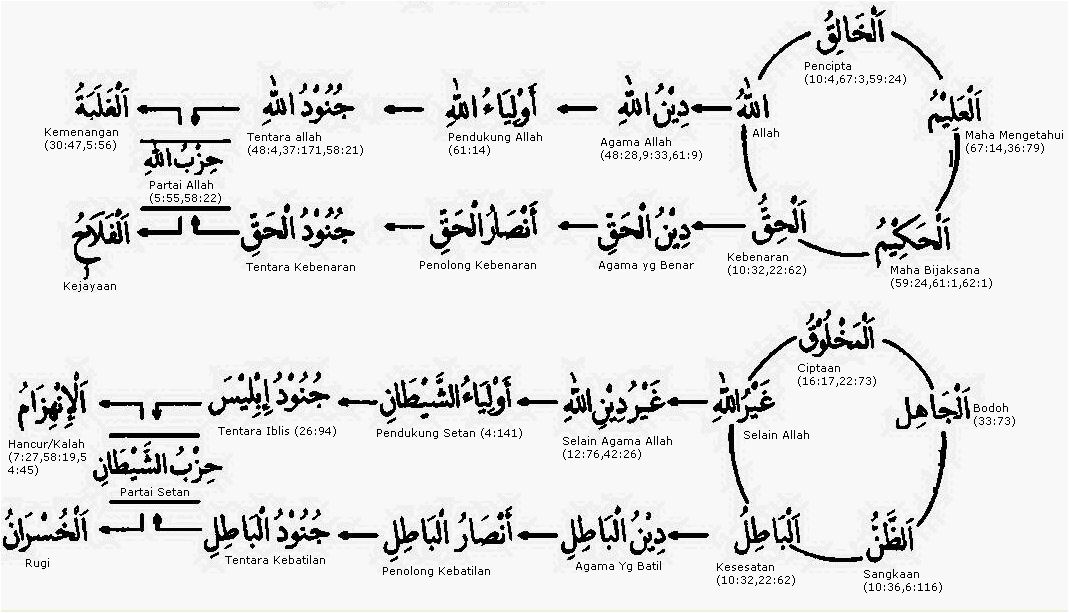 اَلْخَالِقُ
Pencipta
(10:4,67:3,59:24)
اَلْعَلِيْمُ
Maha Mengetahui
(67:14,36:79)
اَلْحَكِيْمُ
Maha Bijaksana
(59:24,61:1,62:1)
اَلْحَقُّ
Kebenaran
(10:32,22:62)
اللّٰهُ
Allah
دِيْنُ اللّٰهِ
Agama Allah
(48:28,9:33,61:9)
أَوْلِيَاءُ اللّٰهِ
Pendukung Allah
(61:14)
جُنُوْدُ اللّٰهِ
Tentara allah
(48:4,37:171,58:21)
اَلْغَلَبَةُ
Kemenangan
(30:47,5:56)
حِزْبُ اللّٰهِ
Partai Allah
(5:55,58:22)
دِيْنُ الْحَقِّ
Agama yg Benar
أَنْصَارُ الْحَقِّ
Penolong Kebenaran
جُنُوْدُ الْحَقِّ
Tentara Kebenaran
اَلْفَلَاحُ
Kejayaan
اَلْمَخْلُوْقُ
Ciptaan
(16:17,22:73)
اَلْجَاهِل
Bodoh
(33:73)
اَلظَّنُّ
Sangkaan
(10:36,6:116)
اَلْبَاطِلُ
Kesesatan
(10:32,22:62)
غَيْرُ اللّٰهِ
Selain Allah
غَيْرُ دِيْنِ اللّٰهِ
Selain Agama Allah
(12:76,42:26)
أَوْلِيَاءُ الشَّيْطَانِ
Pendukung Setan (4:141)
جُنُوْدُ إِبْلِيْسَ
Tentara Iblis (26:94)
اَلْإِنْهِزَامُ
Hancur/Kalah
(7:27,58:19,5
4:45)
حِزْبُ الشَّيْطَانِ
Partai Setan
دِيْنُ الْبَاطِلِ
Agama Yg Batil
أَنْصَارُ الْبَاطِلِ
Penolong Kebatilan
جُنُوْدُ الْبَاطِلِ
Tentara Kebatilan
اَلْخُسْرَانُ
Rugi